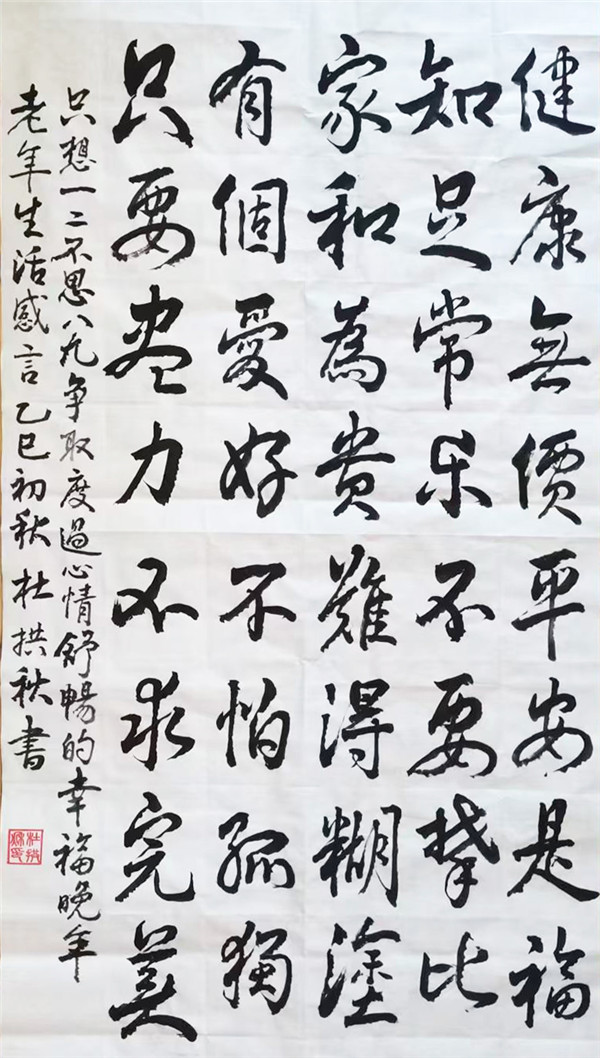 健康無價平安是福
知足常乐不要攀比
家和為貴難得糊塗
有個愛好不怕孤獨
只要尽力不求完美
只想一二不思八九争取度過心情舒暢的幸福晚年
老年生活感言乙巳初秋杜拱秋書